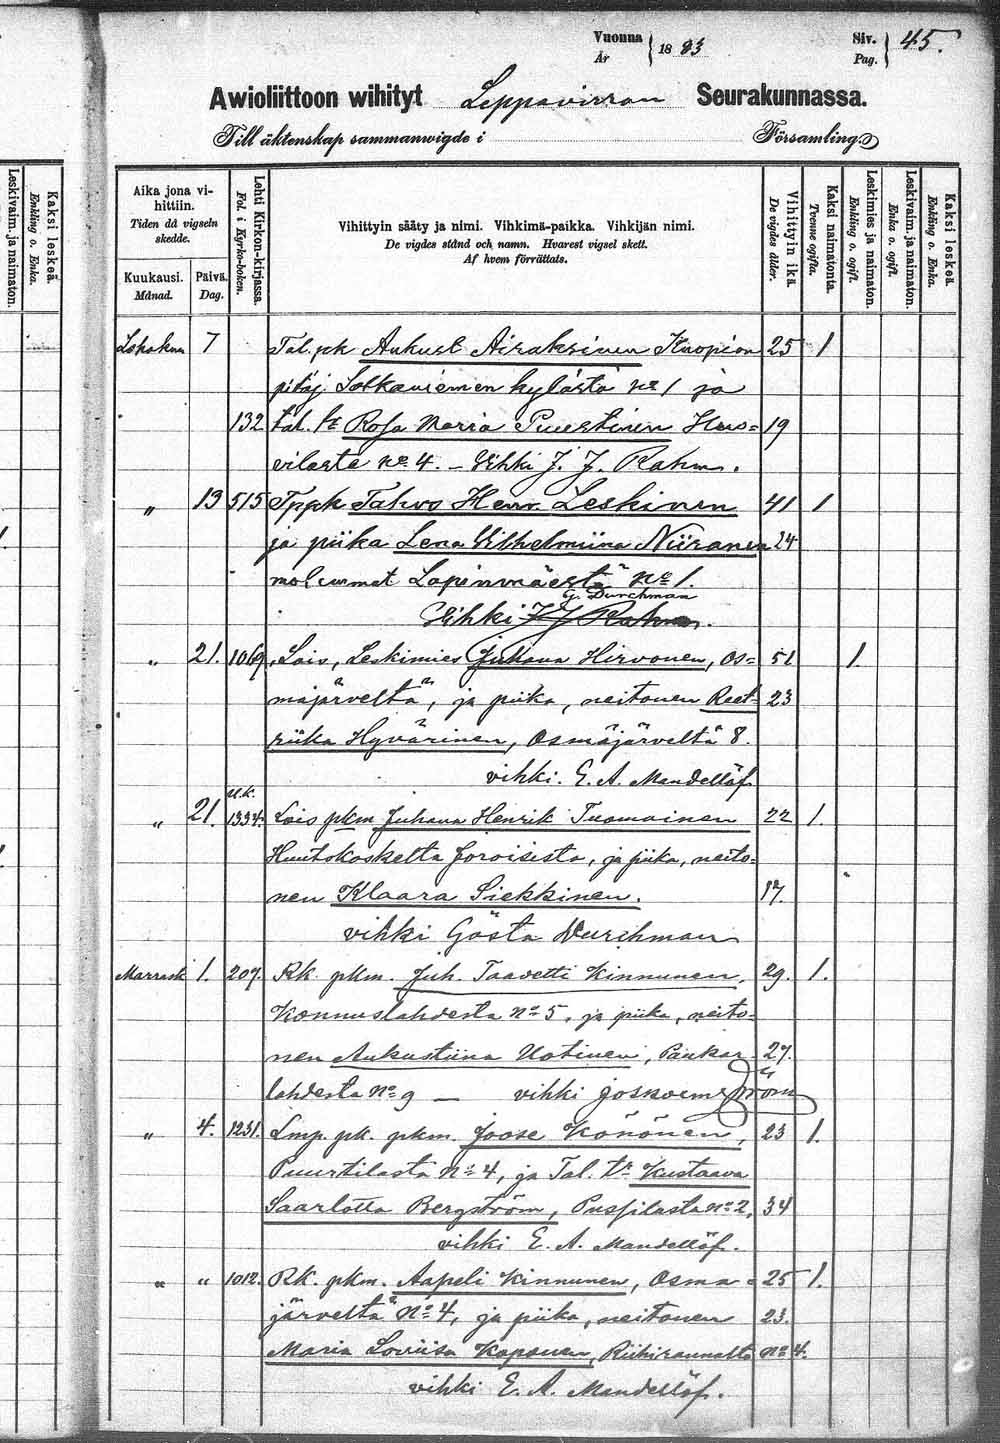 Vuonna
År
1883
Siv.
Pag.
45.
Awioliittoon wihityt Leppävirran Seurakunnassa.
Till äktenskap sammanwigde i Församling.
Leskivaim. ja naimaton.
Enkling o. Enka.
Kaksi leskeä.
Aika jona vi-
hittiin.
Tiden då vigseln
skedde.
Kuukausi.
Månad.
Päivä.
Dag.
Lehti Kirkon-kirjassa.
Fol. i Kyrko-boken.
Vihittyin sääty ja nimi. Vihkimä-paikka. Vihkijän nimi.
De vigdes stånd och namn. Hvarest vigsel skett.
Af hvem förrättats.
Vihittyin ikä.
De vigdes ålder.
Kaksi naimatonta.
Tvenne ogifta.
Leskimies ja naimaton.
Enkling o. ogift.
Leskivaim. ja naimaton.
Enka o. ogift.
Kaksi leskeä.
Enkling o. Enka.
Lokakuu 7 Tal. pk Aukust Airaksinen Kuopion 25 1
pitäj. Sotkaniemen kylästä No 1 ja
132 tal. tr Rosa Maria Puustinen Hus= 19
vilasta No 4. – Vihki J. J. Rahm.
„ 13 515 Tppk Tahvo Henr. Leskinen 41 1
ja piika Lena Vilhelmiina Niiranen 24
molemmat Lapinmäestä No 1.
G. Durchman
Vihki J J Rahm.
„ 21. 1069. Lois, Leskimies Juhana Hirvonen, Os= 51 1.
mäjärveltä, ja piika, neitonen Reet= 23
riika Hyvärinen, Osmäjärveltä 8.
vihki. E. A. Mandellöf
u.k.
„ 21. 1334. Lois pkm Juhana Henrik Tuomainen 22 1.
Huutokoskelta Joroisista, ja piika, neito=
nen Klaara Siekkinen. 17.
vihki Gösta Durchman
Marrask 1. 207. Rk pkm. Juh. Taavetti Kinnunen, 29. 1.
Konnuslahdesta No 5, ja piika, neito=
nen Aukustiina Uotinen, Paukar= 27.
lahdesta No 9 – vihki
„ 4. 1231. Lmp. pk. pkm. Joose Könönen, 23 1.
Puurtilasta No 4, ja Tal. tr Kustaava
Saarlotta Bergström, Pussilasta No 2, 34
vihki E. A. Mandellöf.
„ „ 1012. Rk. pkm. Aapeli Kinnunen, Osma= 25 1.
järveltä No 4, ja piika, neitonen 23.
Maria Loviisa Kaponen, Riihirannalta No 4.
vihki E. A. Mandellöf.